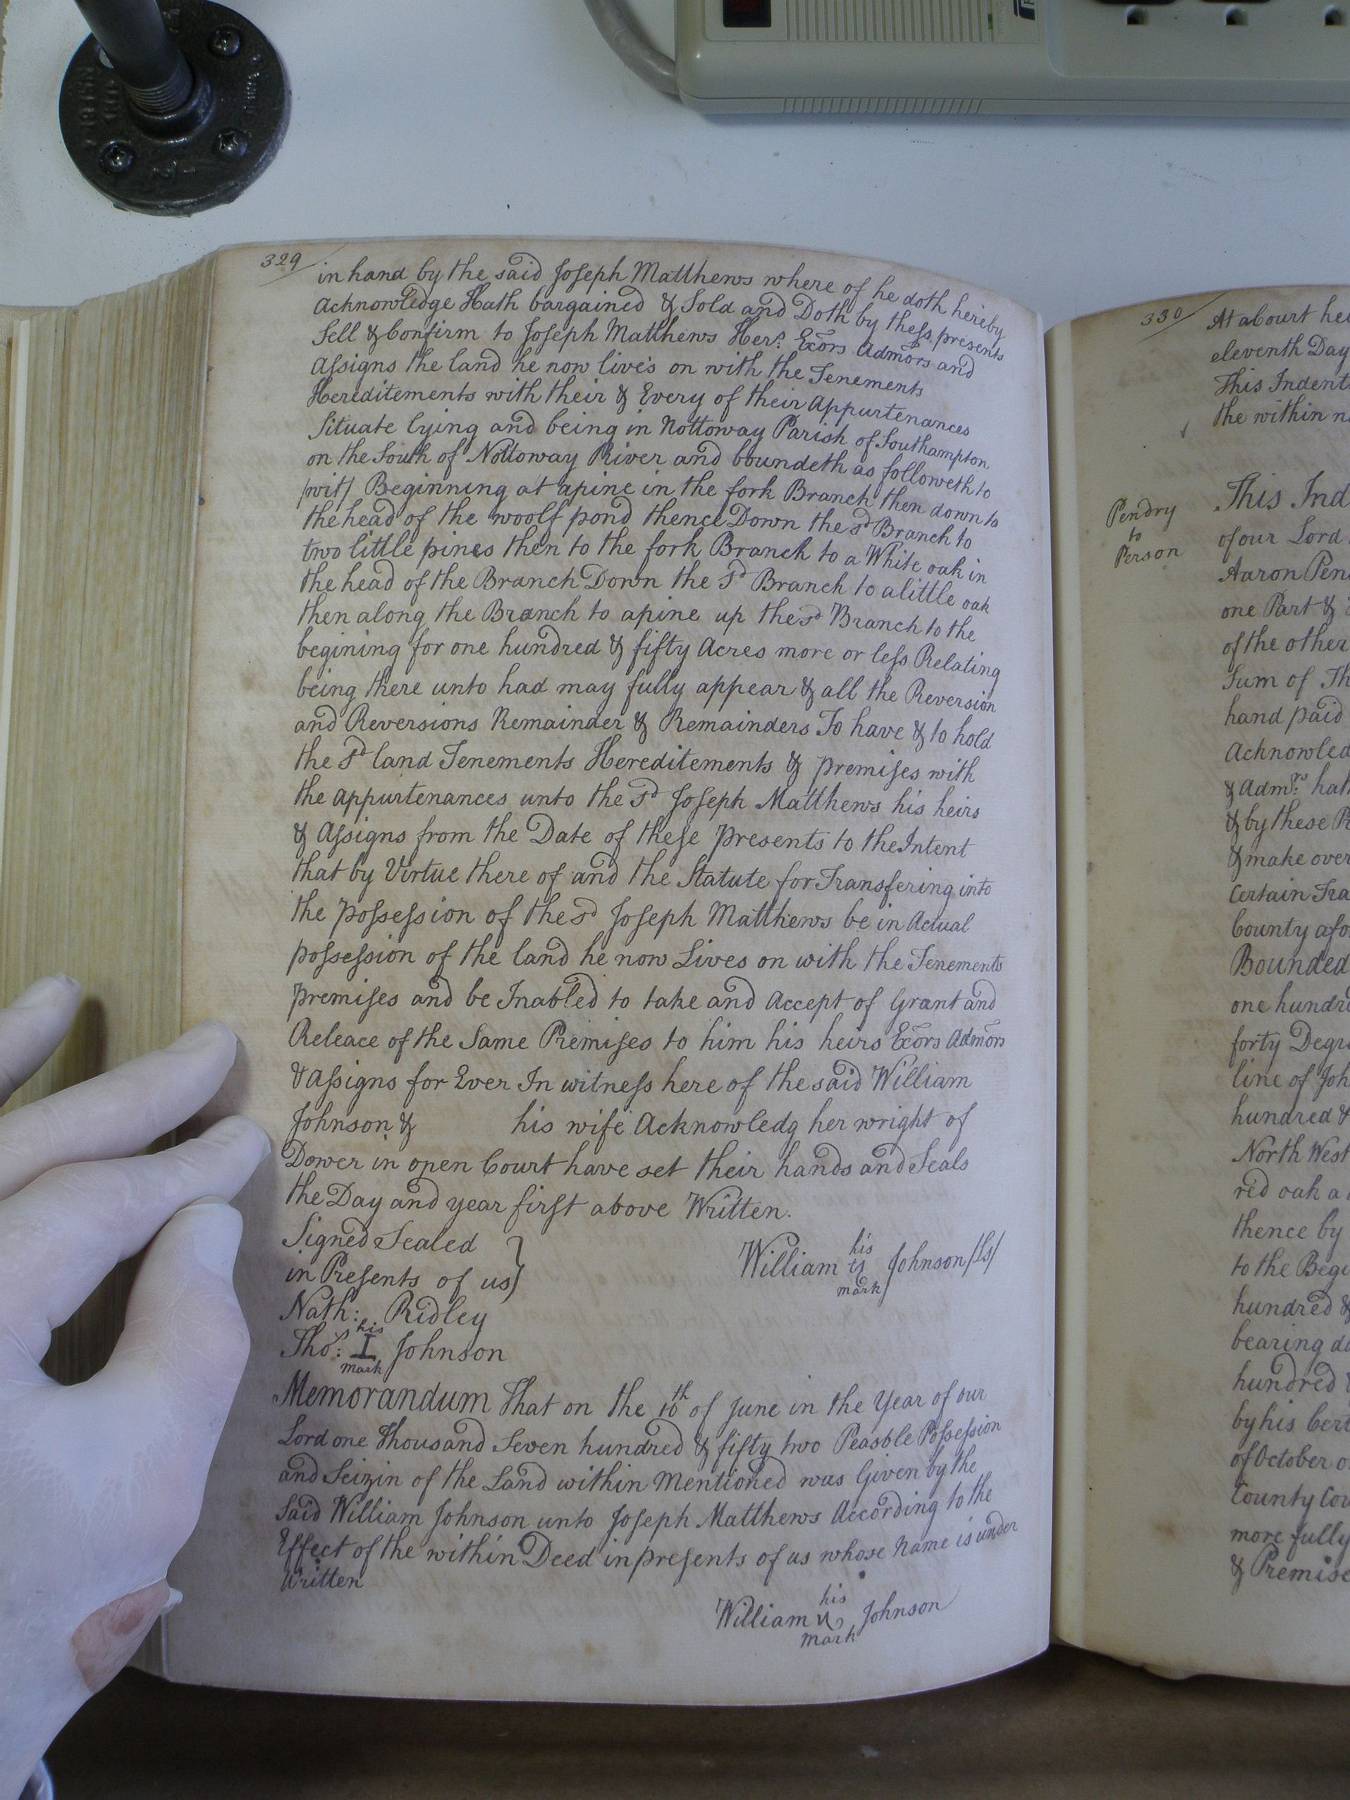 329
in hand by the said Joseph Matthews where of he doth hereby
Acknowledge Hath bargained & Sold and Doth by these presents
Sell & Confirm to Joseph Matthews Hers. Exors Admors and
Assigns the land he now lives on with the Tenements
Hereditements with their & Every of their Appurtenances
Situate lying and being in Nottoway Parish of Southampton
on the South of Nottoway River and boundeth as followeth to
/wit/ Beginning at a pine in the fork Branch then down to
the head of the woolf pond thence Down the sd Branch to
two little pines then to the fork Branch to a White oak in
the head of the Branch Down the sd Branch to a little oak
then along the Branch to a pine up the sd Branch to the
begining for one hundred & fifty Acres more or less Relating
being there unto had may fully appear & all the Reversion
and Reversions Remainder & Remainders To have & to hold
the sd land Tenements Hereditements & premises with
the appurtenances unto the sd Joseph Matthews his heirs
& Assigns from the Date of these presents to the Intent
that by Virtue there of and the Statute for Transfering into
the possession of the sd Joseph Matthews be in Actual
possession of the land he now Lives on with the Tenements
premises and be Inabled to take and accept of Grant and
Releace of the Same Premises to him his heirs Exors Admors
& Assigns for Ever In witness here of the said William
Johnson & his wife Acknowledg her wright of
Dower in open Court have set their hands and Seals
the Day and year first above Written.
Signed Sealed
in Presents of us }
William his mark Johnson /Ls/
Nath: Ridley
Tho: his I mark Johnson
Memorandum That on the 10th of June in the Year of our
Lord one Thousand Seven hundred & fifty two Peasble Possession
and Seizin of the Land within Mentioned was Given by the
Said William Johnson unto Joseph Matthews According to the
Effect of the within Deed in presents of us whose Name is under
Written
William his mark Johnson
330
At a Court he
eleventh Day
This Indent
the within n
Pendry
to
Person
This Ind
of our Lord
Aaron Pen
one Part &
of the other
Sum of Th
hand paid
Acknowled
& Admrs. hat
& by these P
& make over
Certain Tra
County afo
Bounded
one hundre
forty Degr
line of Joh
hundred &
North West
red oak a
thence by
to the Begi
hundred &
bearing da
hundred &
by his
of October o
County Cou
more fully
& Premise